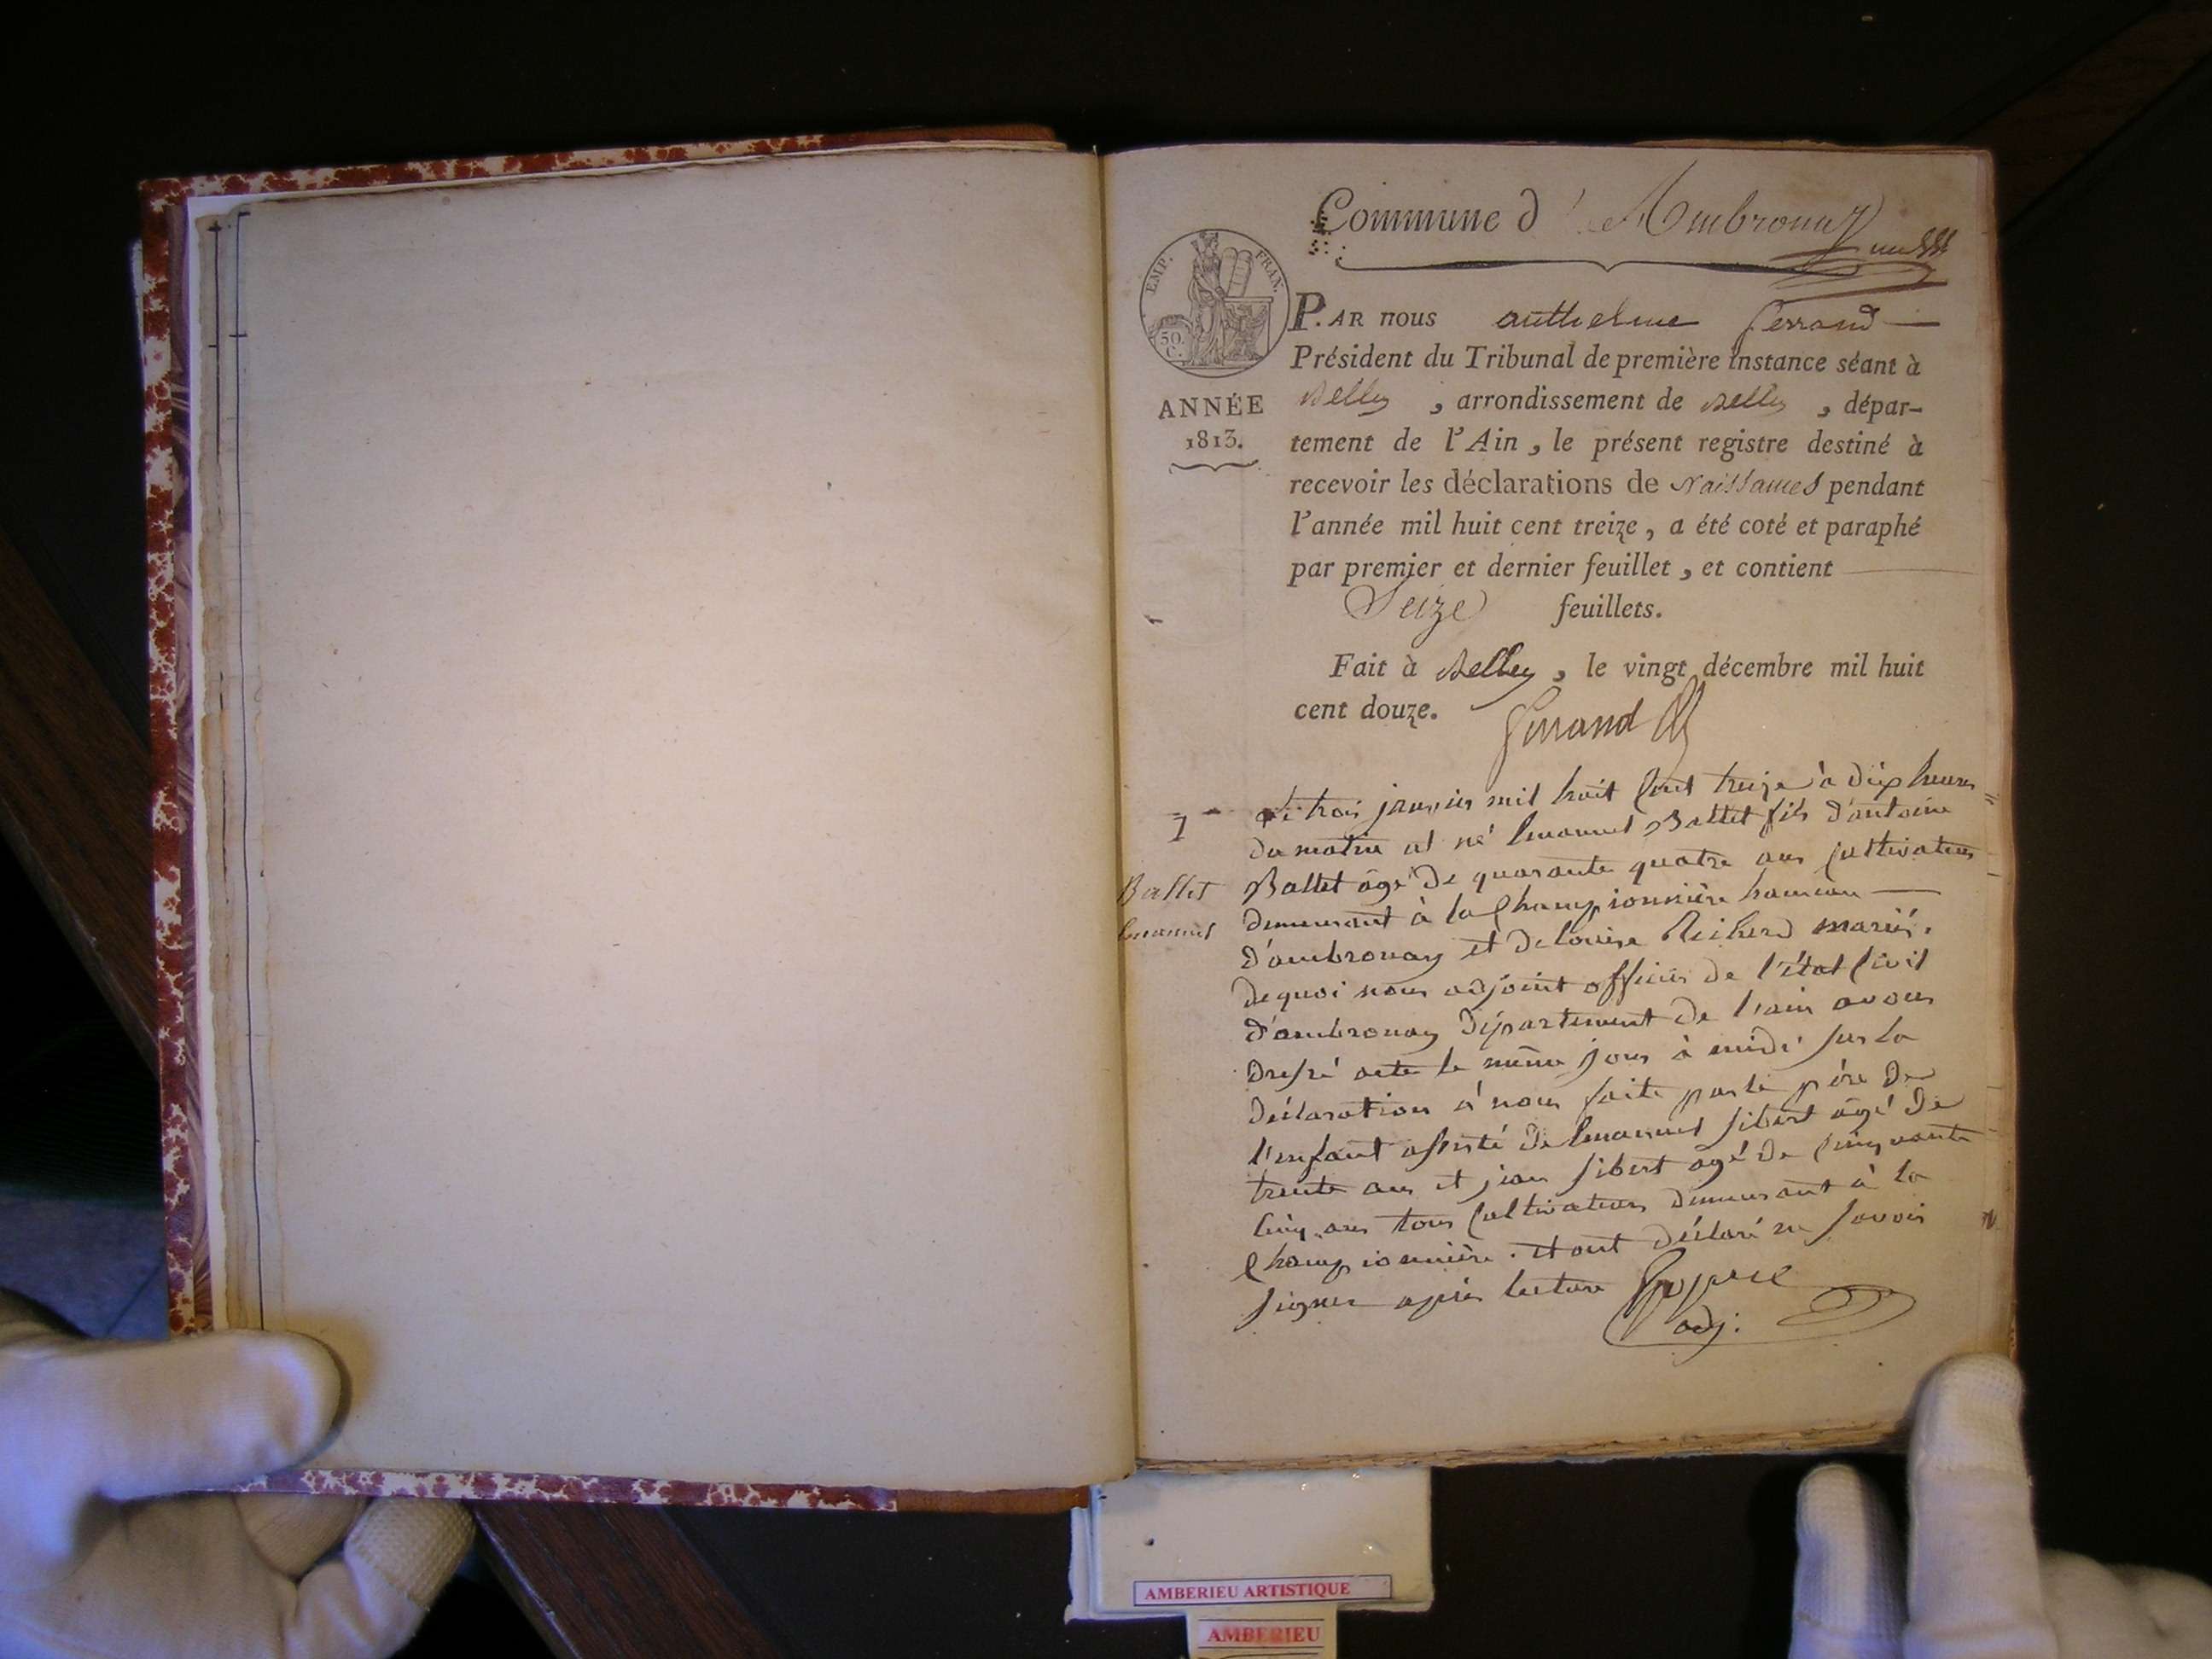 Commune d'Ambronay
EMP. FRAN.
50.
C.
ANNÉE
1813.
PAR nous anthelme ferrand
Président du Tribunal de première instance séant à
Belley, arrondissement de Belley, dépar-
tement de l'Ain, le présent registre destiné à
recevoir les déclarations de Naissances pendant
l'année mil huit cent treize, a été coté et paraphé
par premier et dernier feuillet, et contient
Seize feuillets.
Fait à Belley, le vingt décembre mil huit
cent douze.
ferrand
1
Ballet
Emanuel
Le trois janvier mil huit cent treize à dix heures
du matin est né Emanuel Ballet fils d'antoine
Ballet âgé de quarante quatre ans cultivateur
demeurant à la Championnière hameau
d'ambronay et de louise Richerd mariés.
de quoi nous adjoint officier de l'état civil
d'ambronay département de l'ain avons
dressé acte le même jour à midi sur la
déclaration à nous faite par le père de
l'enfant assisté de Emanuel sibert âgé de
trente ans et jean sibert âgé de cinquante
cinq ans tous cultivateurs demeurant à la
Championnière. et ont déclaré ne savoir
signer après lecture
adj.
AMBERIEU ARTISTIQUE
AMBERIEU